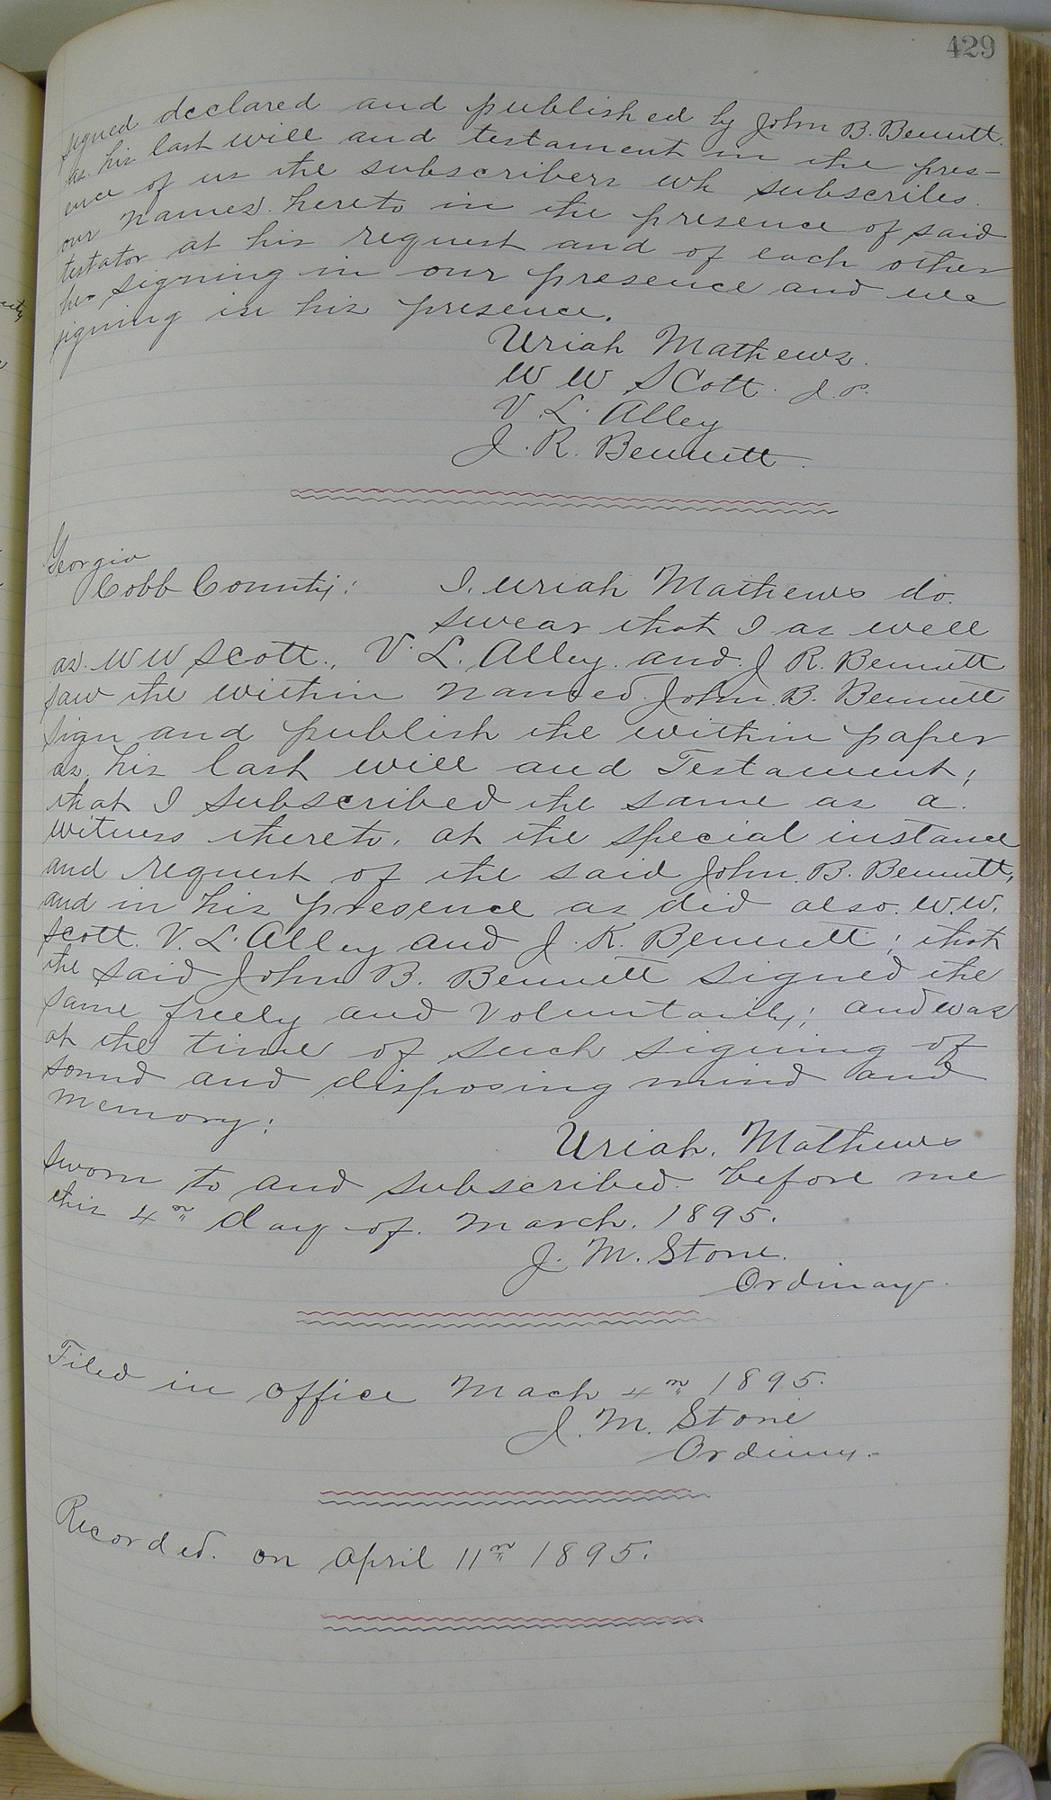 429
signed declared and published by John B. Bennett.
as his last will and testament in the pres-
ence of us the subscribers wh subscribes.
our names hereto in the presence of said
testator at his request and of each other
he signing in our presence and we
signing in his presence.
Uriah Mathews.
W W Scott. J. P.
V. L. Alley
J. R. Bennett.
Georgia
Cobb County: I, Uriah Mathews do.
swear that I as well
as. W W Scott., V. L. Alley. and. J R. Bennett
saw the within named John. B. Bennett
sign and publish the within paper
as his last will and Testament;
that I subscribed the same as a.
witness thereto. at the special instance
and request of the said John. B. Bennett,
and in his presence as did also. W. W.
Scott. V. L. Alley and J. R. Bennett; that
the said John B. Bennett signed the
same freely and Voluntarily; and was
at the time of such signing of
sound and disposing mind and
memory:
Uriah. Mathews
Sworn to and subscribed. before me
this 4th day of. March. 1895.
J. M. Stone.
Ordinay.
Filed in office Mach 4th 1895.
J. M. Stone
Ordinay.
Recorded. on April 11th 1895.